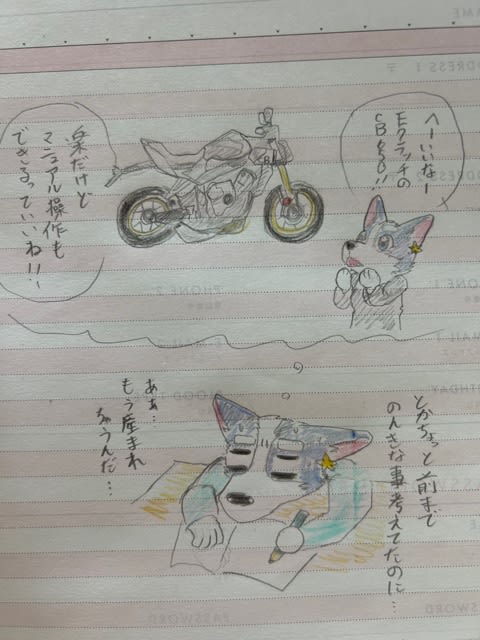 へーいいなー
Eクラッチの
CB650!!
楽だけど
マニュアル操作も
できるっていいね!!
とかちょっと前まで
のんきな事考えてたのに…
あぁ…
もう産まれ
ちゃうんだ…